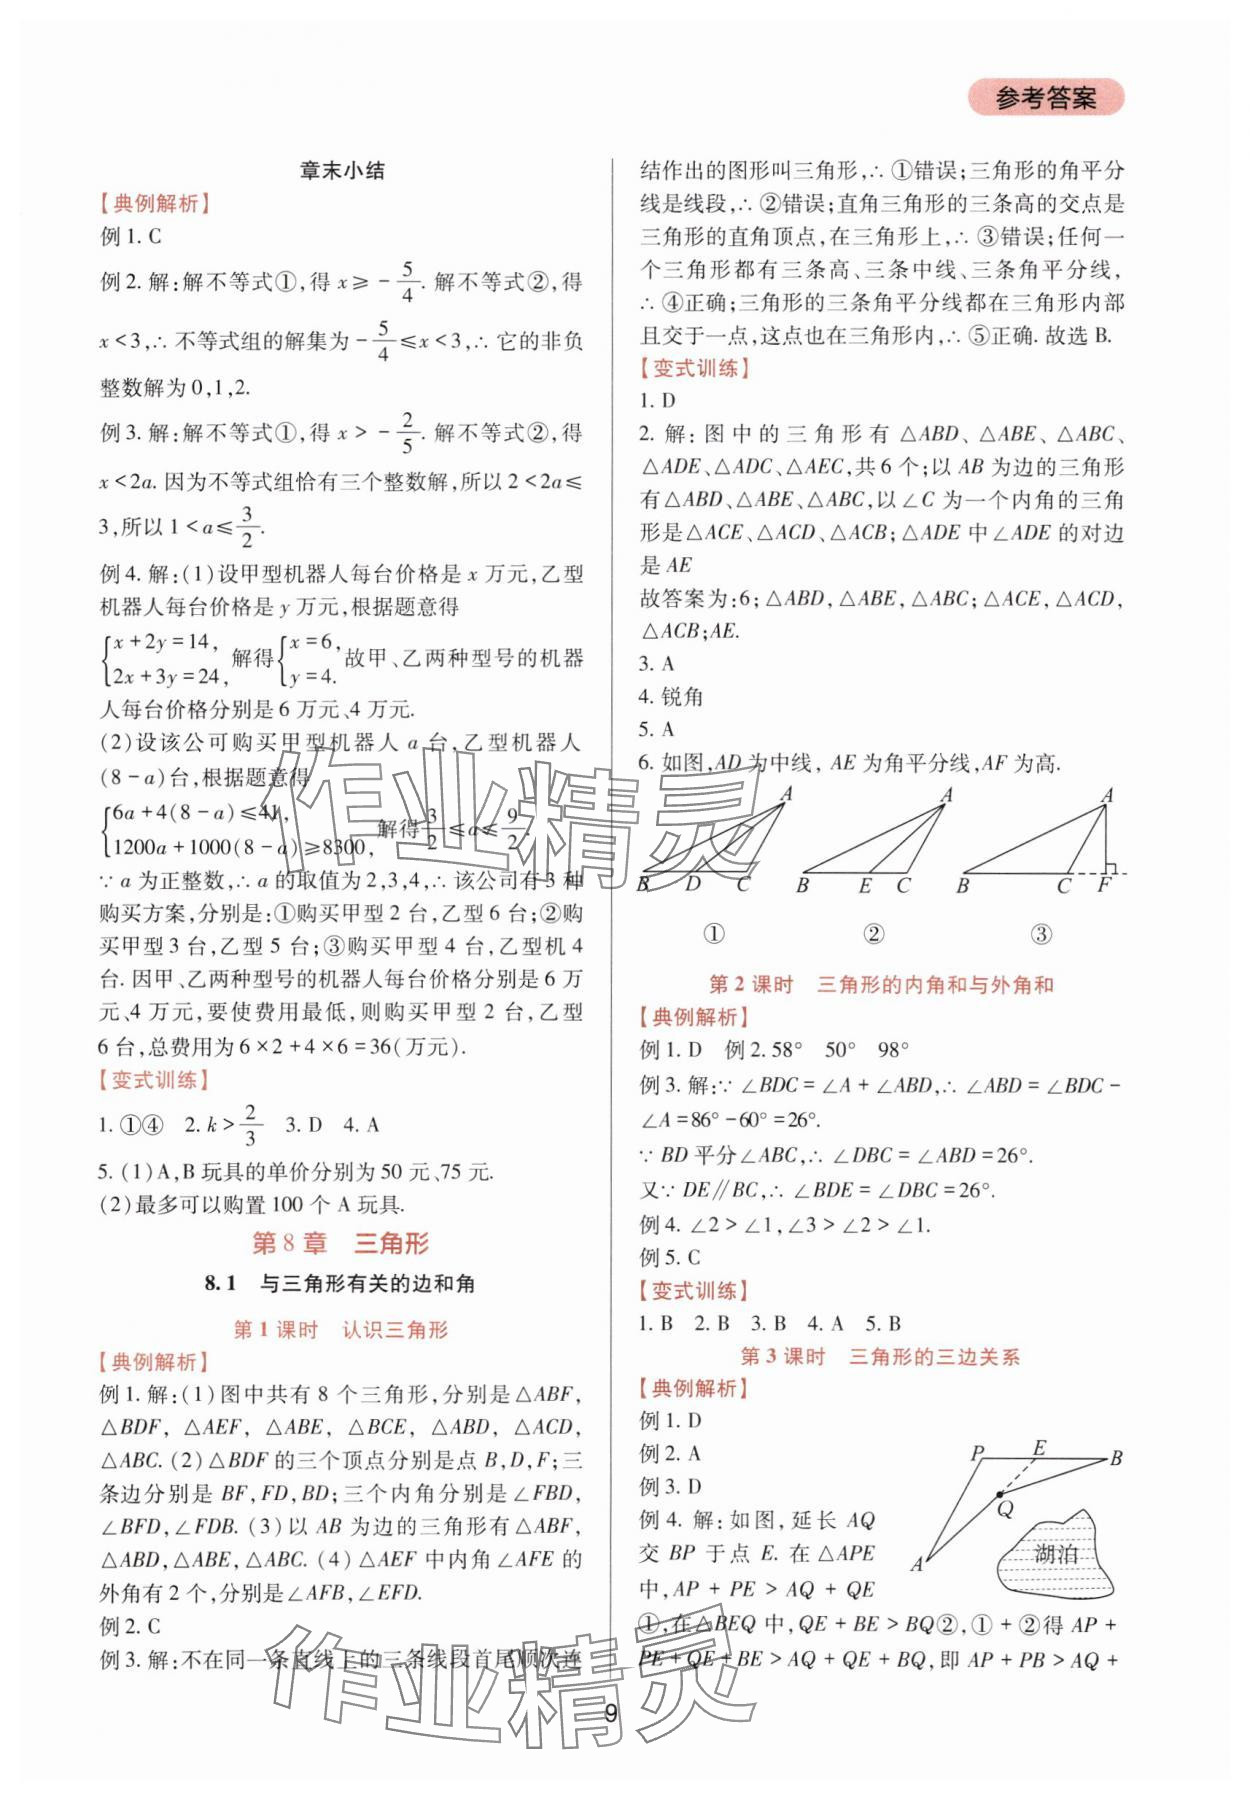 参考答案
章末小结
【典例解析】
例1. C
例2. 解:解不等式①,得 x ≥ -5/4. 解不等式②,得
x<3,∴ 不等式组的解集为 -5/4 ≤x<3,∴ 它的非负
整数解为 0,1,2.
例3. 解:解不等式①,得 x > -2/5. 解不等式②,得
x<2a. 因为不等式组恰有三个整数解,所以 2<2a≤
3,所以 1<a≤3/2.
例4. 解:(1)设甲型机器人每台价格是 x 万元,乙型
机器人每台价格是 y 万元,根据题意得
{x+2y=14, 2x+3y=24, 解得{x=6, y=4. 故甲、乙两种型号的机器
人每台价格分别是 6 万元、4 万元.
(2)设该公可购买甲型机器人 a 台,乙型机器人
(8-a)台,根据题意得
{6a+4(8-a)≤41, 1200a+1000(8-a)≥8300, 解得 3/2 ≤a≤ 9/2.
∵ a 为正整数,∴ a 的取值为 2,3,4,∴ 该公司有 3 种
购买方案,分别是:①购买甲型 2 台,乙型 6 台;②购
买甲型 3 台,乙型 5 台;③购买甲型 4 台,乙型机 4
台. 因甲、乙两种型号的机器人每台价格分别是 6 万
元、4 万元,要使费用最低,则购买甲型 2 台,乙型
6 台,总费用为 6×2+4×6=36(万元).
【变式训练】
1. ①④ 2. k>2/3 3. D 4. A
5. (1)A,B 玩具的单价分别为 50 元、75 元.
(2)最多可以购置 100 个 A 玩具.
第 8 章 三角形
8.1 与三角形有关的边和角
第 1 课时 认识三角形
【典例解析】
例1. 解:(1)图中共有 8 个三角形,分别是△ABF,
△BDF, △AEF, △ABE, △BCE, △ABD, △ACD,
△ABC. (2)△BDF 的三个顶点分别是点 B,D,F;三
条边分别是 BF,FD,BD;三个内角分别是∠FBD,
∠BFD,∠FDB. (3)以 AB 为边的三角形有△ABF,
△ABD,△ABE,△ABC. (4)△AEF 中内角∠AFE 的
外角有 2 个,分别是∠AFB,∠EFD.
例2. C
例3. 解:不在同一条直线上的三条线段首尾顺次连
结作出的图形叫三角形,∴ ①错误;三角形的角平分
线是线段,∴ ②错误;直角三角形的三条高的交点是
三角形的直角顶点,在三角形上,∴ ③错误;任何一
个三角形都有三条高、三条中线、三条角平分线,
∴ ④正确;三角形的三条角平分线都在三角形内部
且交于一点,这点也在三角形内,∴ ⑤正确. 故选 B.
【变式训练】
1. D
2. 解:图中的三角形有△ABD、△ABE、△ABC、
△ADE、△ADC、△AEC,共 6 个;以 AB 为边的三角形
有△ABD、△ABE、△ABC,以∠C 为一个内角的三角
形是△ACE、△ACD、△ACB;△ADE 中∠ADE 的对边
是 AE
故答案为:6;△ABD,△ABE,△ABC;△ACE,△ACD,
△ACB;AE.
3. A
4. 锐角
5. A
6. 如图,AD 为中线, AE 为角平分线,AF 为高.
A A A
B D C B E C B C F
① ② ③
第 2 课时 三角形的内角和与外角和
【典例解析】
例1. D 例2. 58° 50° 98°
例3. 解:∵ ∠BDC=∠A+∠ABD,∴ ∠ABD=∠BDC-
∠A=86°-60°=26°.
∵ BD 平分∠ABC,∴ ∠DBC=∠ABD=26°.
又∵ DE∥BC,∴ ∠BDE=∠DBC=26°.
例4. ∠2>∠1,∠3>∠2>∠1.
例5. C
【变式训练】
1. B 2. B 3. B 4. A 5. B
第 3 课时 三角形的三边关系
【典例解析】
例1. D
例2. A
例3. D
例4. 解:如图,延长 AQ
交 BP 于点 E. 在△APE
中,AP+PE>AQ+QE
P E B
Q
A
湖泊
①,在△BEQ 中,QE+BE>BQ②,①+②得 AP+
PE+QE+BE>AQ+QE+BQ,即 AP+PB>AQ+
9
作业精灵
作业精灵